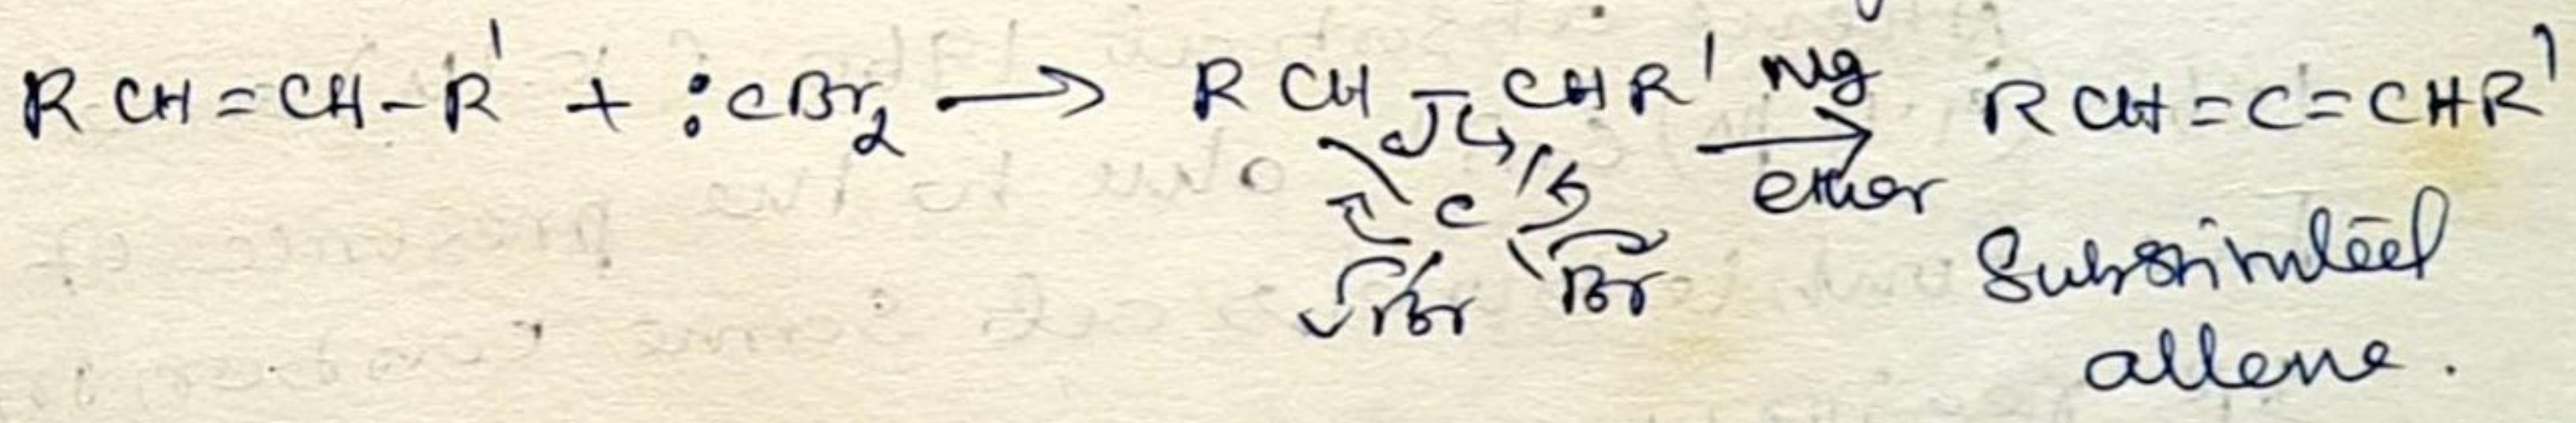 RCH=CH-R' + :CBr2 → RCH-CHR' Mg → RCH=C=CHR'
ether
C
Br Br
Substituted
allene.